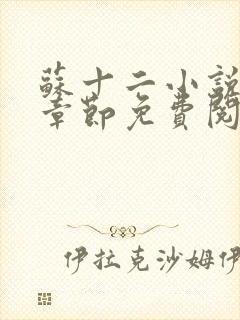 蘇十二小說
章節免費閱
伊拉克沙姆伊